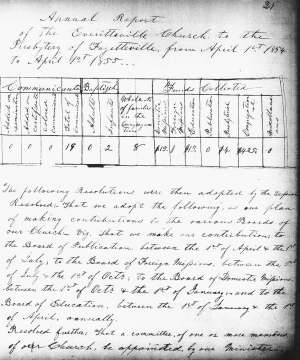 21
Annual Report
of the Everittsville Church to the
Presbytery of Fayetteville, from April 1st 1854
to April 1st 1855...
Communicants Baptized Funds Collected
Added on Added on certificate Total of Adults Infants Whole No. of families in the Congregation Domestic Missions Foreign Missions Education Publication Presbyterial Congregational
0 0 0 0 19 0 2 8 $15 $15 0 $4 $425 0
The following Resolution were then adopted by the Session
Resolved, That we adopt the following, as our plan
of making contributions to the various Boards of
our Church viz. That we make our contribution to
the Board of Publication between the 1st of April & the 1st
of July; to the Board of Foreign Missions, between the 1st
of July & the 1st of Octr; to the Board of Domestic Missions
between the 1st of Octr & the 1st of January; and to the
Board of Education, between the 1st of January & the 1st
of April, annually.
Resolved further That a committee, of one or more members
of our Church, be appointed by our Minister